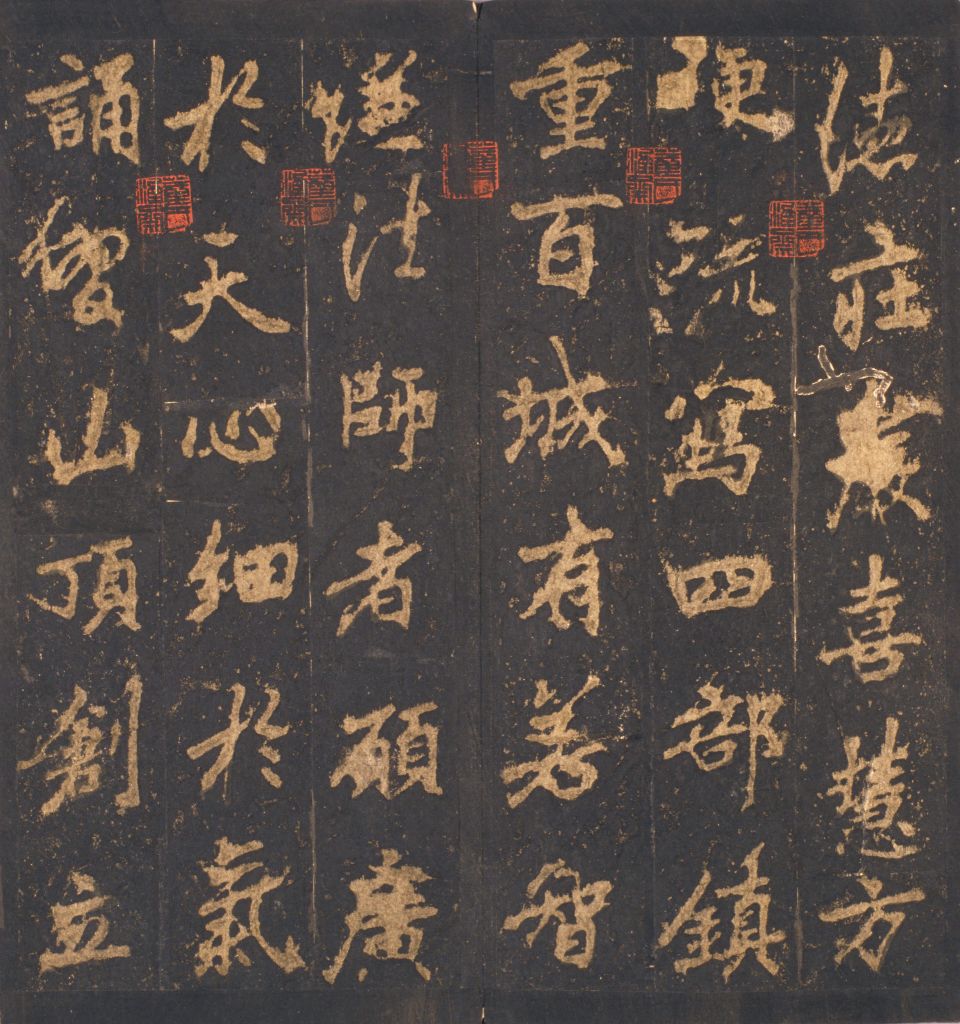 德莊嚴喜慧方
便流寫四部鎮
重百城有若智
謙法師者碩廣
於天心細於氣
誦習山頂創立